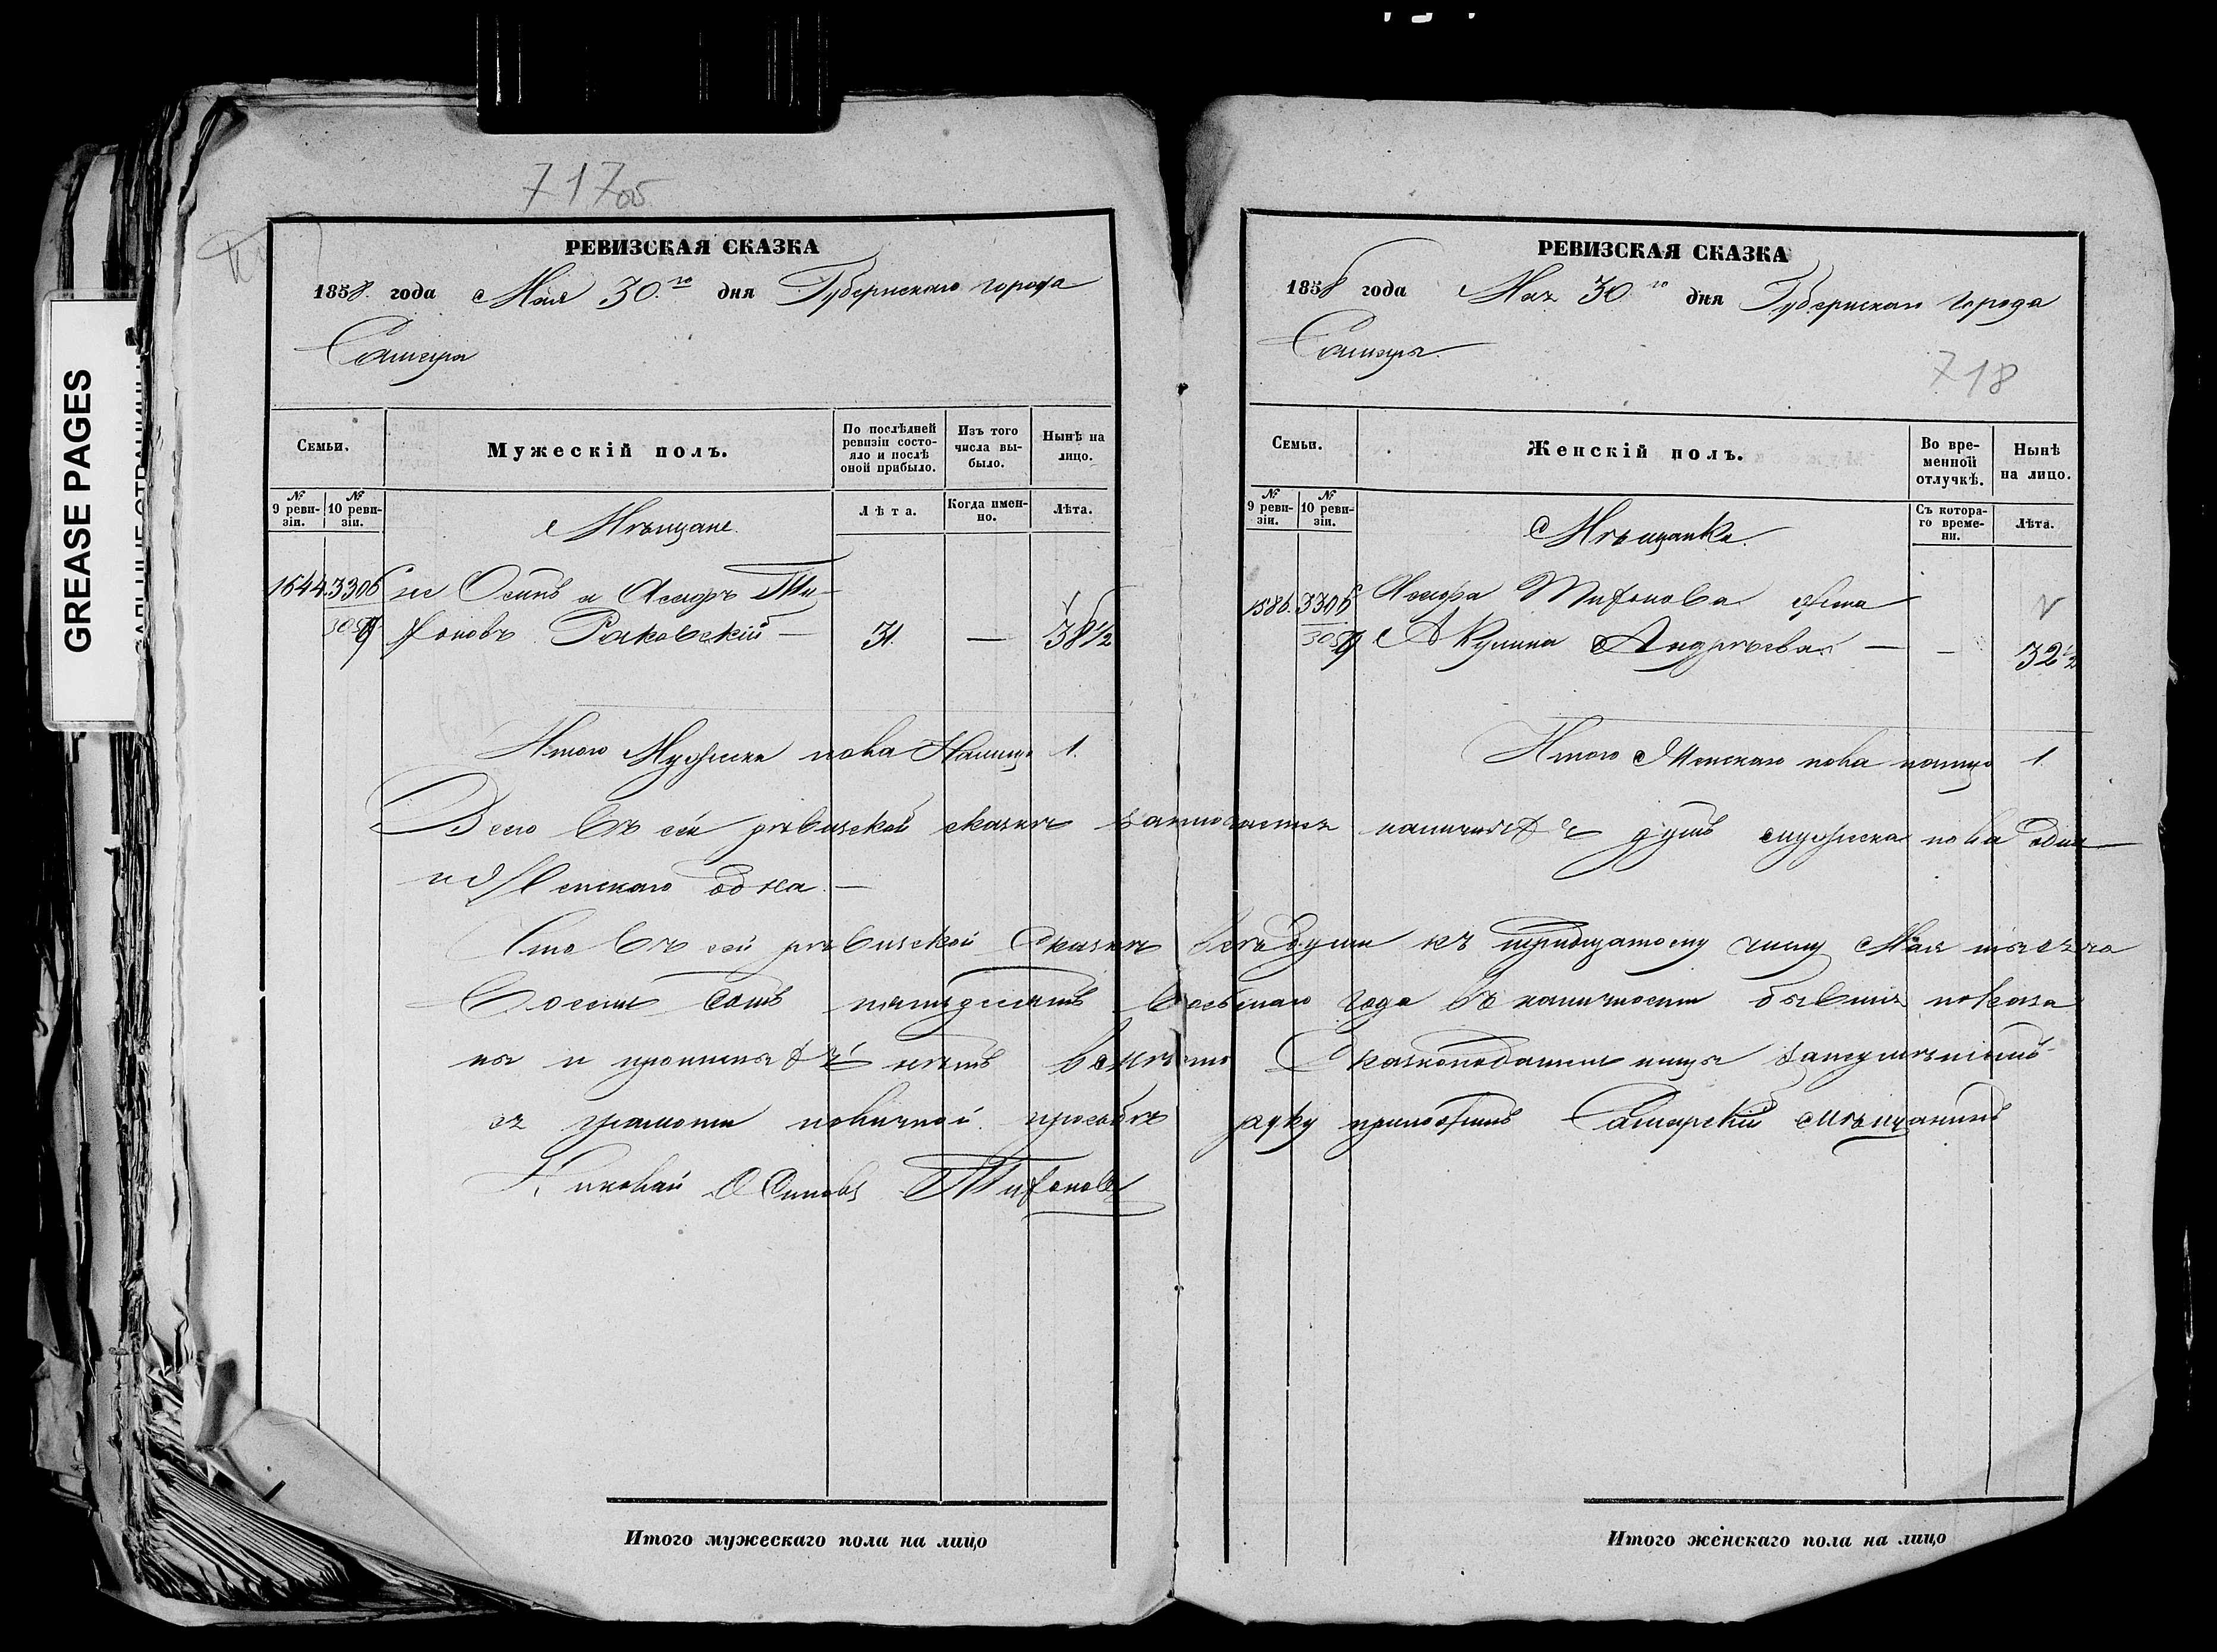 717об
РЕВИЗСКАЯ СКАЗКА
1858 года Мая 30го дня Губернскаго города
Самары
Семьи.
Мужескій полъ.
По послѣдней ревизіи состояло и послѣ оной прибыло.
Изъ того числа выбыло.
Нынѣ на лицо.
№ 9 ревизіи.
№ 10 ревизіи.
Лѣта.
Когда именно.
Лѣта.
Мѣщане.
1644 3306 Осипъ Ти-
фоновъ Раковскій — 31. — 38½
Итого Мужеска пола Налицо 1.
РЕВИЗСКАЯ СКАЗКА
1858 года Мая 30го дня Губернскаго города
Самары.
718
Семьи.
Женскій полъ.
Во временной отлучкѣ.
Нынѣ на лицо.
№ 9 ревизіи.
№ 10 ревизіи.
Съ котораго времени.
Лѣта.
Мѣщанка.
1586. 3306 Тифонова жена
Акулина Андрѣева — — 32½
Итого Женскаго пола налицо 1.
Всего въ сей ревизской сказкѣ заключается наличныхъ душъ мужеска пола одна
и женскаго одна. —
Что въ сей ревизской Сказкѣ всѣ души къ тридцатому числу Мая тысяча
Восемь Сотъ пятьдесятъ восьмаго года въ наличности бывшія показа
ны и прописныхъ нѣтъ
грамоты по личной просьбѣ руку приложилъ Самарскій мѣщанинъ
Николай Осиповъ Тифоновъ
Итого мужескаго пола на лицо
Итого женскаго пола на лицо
GREASE PAGES